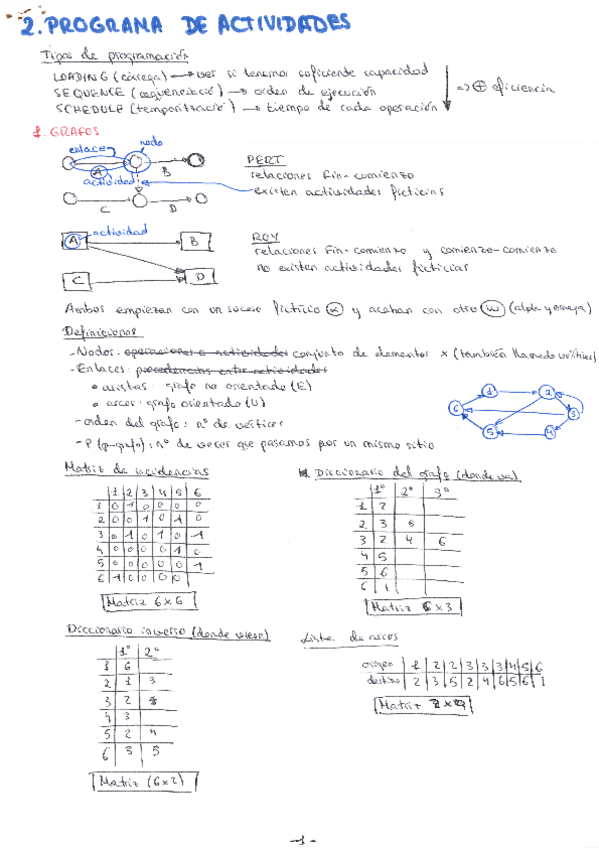 2. PROGRAMA DE ACTIVIDADES
Tipos de programación
LOADING (càrrega) → ver si tenemos suficiente capacidad
SEQUENCE (seqüenciació) → orden de ejecución
SCHEDULE (temporització) → tiempo de cada operación
=> + eficiencia
1. GRAFOS
enlace
nodo
A
B
actividad
C
D
PERT
relaciones fin-comienzo
existen actividades ficticias
A
actividad
B
C
D
ROY
relaciones fin-comienzo y comienzo-comienzo
no existen actividades ficticias
Ambos empiezan con un suceso ficticio α y acaban con otro ω (alpha y omega)
Definiciones
- Nodos: operaciones o actividades conjunto de elementos x (también llamado vértices)
- Enlaces: precedencias entre actividades
• aristas: grafo no orientado (E)
• arcos: grafo orientado (U)
- orden del grafo: nº de vértices
- P (p-grafo): nº de veces que pasamos por un mismo sitio
1 2
6 3
5 4
Matriz de incidencias
1 2 3 4 5 6
1 0 1 0 0 0 0
2 0 0 1 0 1 0
3 0 1 0 1 0 1
4 0 0 0 0 1 0
5 0 0 0 0 0 1
6 1 0 0 0 0
Matriz 6x6
Diccionario del grafo (donde va)
1º 2º 3º
1 2
2 3 5
3 2 4 6
4 5
5 6
6 1
Matriz 6x3
Diccionario inverso (donde viene)
1º 2º
1 6
2 1 3
3 2
4 3
5 2 4
6 3 5
Matriz (6x2)
Lista de arcos
origen 1 2 2 3 3 3 4 5 6
destino 2 3 5 2 4 6 5 6 1
Matriz 2x9
-1-